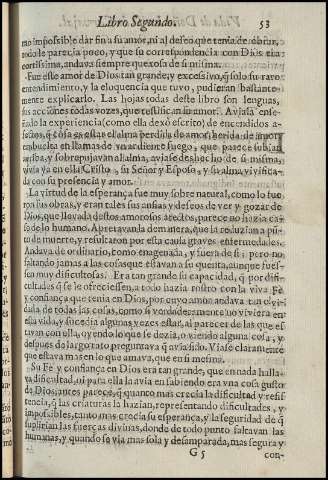 Libro Segundo. 53
mo impossible dar fin a su amor, ni al deseo que tenia de obrar,
todo le parecia poco, y que su correspondencia con Dios era
cortissima, andava siempre quexosa de si misma.
Fue este amor de Dios tan grande, y excessivo, q̃ solo su raro
entendimiento, y la eloquencia que tuvo, pudieran bastante-
mente explicarlo. Las hojas todas deste libro son lenguas,
sus acciones todas vozes, que testifican su amor. Aviase ense-
ñado la experiencia (como ella dexò escrito) de encendidos a-
fectos, q̃ cosa es estar el alma perdida de amor, herida de amor,
embuelta en llamas de vn ardiente fuego, que parece subian
arriba, y sobrepujavan al alma, aviase deshecho de si misma,
vivia ya en ella Christo, su Señor y Esposo, y su alma vivificada
con su presencia y amor.
La virtud de la esperança fue muy sobre natural, como lo fue
ron sus obras, y eran tales sus ansias y deseos de ver y gozar de
Dios, que llevada destos amorosos afectos, parece no hazia ca-
so de lo humano. Apretavanla de manera, que la reduzian a pũ-
to de muerte, y resultaron por esta causa graves enfermedades.
Andava de ordinario, como enagenada, y fuera de si; pero no
faltando jamas a las cosas que estavan a su cuenta, aunque fues-
en muy dificultosas. Era tan grande su capacidad, q̃ por difi-
cultades q̃ se le ofreciessen, a todo hazia rostro con la viva Fè
y confiança que tenia en Dios, por cuyo amor andava tan olvi-
dada de todas las cosas, como si verdaderamente no viviera en
esta vida, y sucedia algunas vezes estar, al parecer de las que es-
tavan con ella, oyendo lo que se dezia, o viendo alguna cosa, y
despues de largo rato preguntava q̃ avia sido. Viase claramente
que estava mas en lo que amava, que en si mesma.
Su Fè y confiança en Dios era tan grande, que en nada halla-
va dificultad, ni para ella lo avia en sabiendo era vna cosa gusto
de Dios, antes parece, q̃ quanto mas crecia la dificultad y resis-
tencia, q̃ las criaturas la hazian, representando dificultades, y
impossibles, tanto mas crecia su esperança, y la seguridad de q̃
suplirian las fuerças divinas, donde de todo punto faltavan las
humanas, y quando se via mas sola y desamparada, mas segura y
G 5 con-